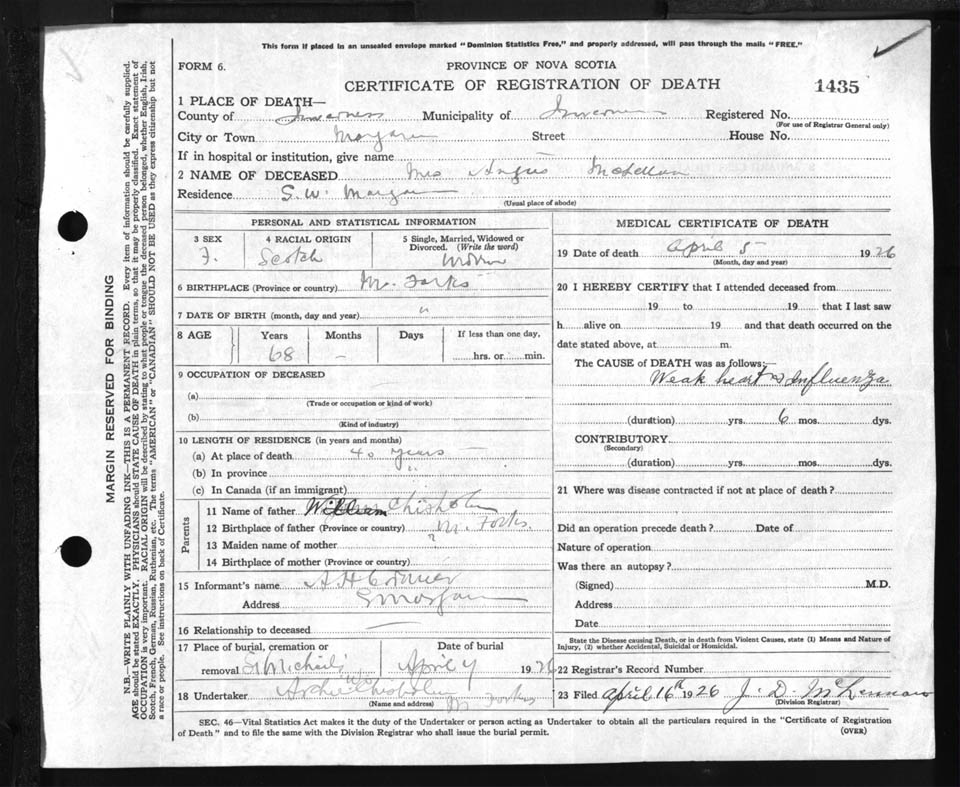 This form if placed in an unsealed envelope marked "Dominion Statistics Free," and properly addressed, will pass through the mails "FREE."
FORM 6.
PROVINCE OF NOVA SCOTIA
CERTIFICATE OF REGISTRATION OF DEATH
1435
1 PLACE OF DEATH—
County of Inverness Municipality of Inverness Registered No.
(For use of Registrar General only)
City or Town Margaree Street House No.
If in hospital or institution, give name
2 NAME OF DECEASED Mrs Angus McLellan
Residence S. W. Margaree
(Usual place of abode)
PERSONAL AND STATISTICAL INFORMATION
3 SEX F.
4 RACIAL ORIGIN Scotch
5 Single, Married, Widowed or Divorced. (Write the word)
6 BIRTHPLACE (Province or country) M. Forks
7 DATE OF BIRTH (month, day and year) "
8 AGE Years Months Days If less than one day,
68 – hrs. or min.
9 OCCUPATION OF DECEASED
(a)
(Trade or occupation or kind of work)
(b)
(Kind of industry)
10 LENGTH OF RESIDENCE (in years and months)
(a) At place of death 40 years
(b) In province "
(c) In Canada (if an immigrant)
Parents
11 Name of father William Chisholm
12 Birthplace of father (Province or country) M. Forks
13 Maiden name of mother ?
14 Birthplace of mother (Province or country)
15 Informant's name A H
Address S W Margaree
16 Relationship to deceased
17 Place of burial, cremation or removal St Michaels
Date of burial April 7 1926
18 Undertaker Archie Chisholm M Forks
(Name and address)
MEDICAL CERTIFICATE OF DEATH
19 Date of death April 5 1926
(Month, day and year)
20 I HEREBY CERTIFY that I attended deceased from
19 to 19 that I last saw
h alive on 19 and that death occurred on the
date stated above, at m.
The CAUSE of DEATH was as follows:
Weak heart & Influenza
(duration) yrs. 6 mos. dys.
CONTRIBUTORY
(Secondary)
(duration) yrs. mos. dys.
21 Where was disease contracted if not at place of death?
Did an operation precede death? Date of
Nature of operation
Was there an autopsy?
(Signed) M.D.
Address
Date
State the Disease causing Death, or in death from Violent Causes, state (1) Means and Nature of
Injury, (2) whether Accidental, Suicidal or Homicidal.
22 Registrar's Record Number
23 Filed April 16th 1926 J. D. McLennan
(Division Registrar)
SEC. 46—Vital Statistics Act makes it the duty of the Undertaker or person acting as Undertaker to obtain all the particulars required in the "Certificate of Registration
of Death" and to file the same with the Division Registrar who shall issue the burial permit.
(OVER)
MARGIN RESERVED FOR BINDING
N.B.—WRITE PLAINLY WITH UNFADING INK—THIS IS A PERMANENT RECORD. Every item of information should be carefully supplied.
AGE should be stated EXACTLY. PHYSICIANS should STATE CAUSE OF DEATH in plain terms, so that it may be properly classified. Exact statement of
OCCUPATION is very important. RACIAL ORIGIN will be described by stating to what people or tongue the deceased person belonged, whether English, Irish,
Scotch, French, German, Russian, Ruthenian, etc. The terms "AMERICAN" or "CANADIAN" SHOULD NOT BE USED as they express citizenship but not
a race or people. See instructions on back of Certificate.